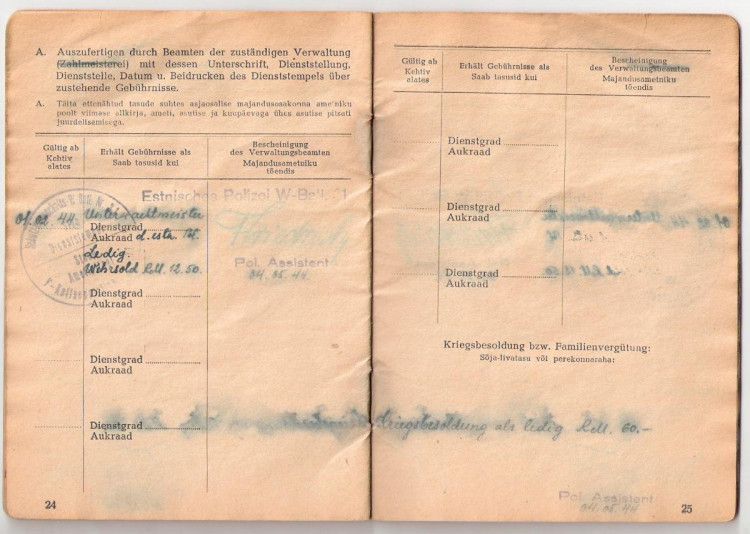 A. Auszufertigen durch Beamten der zuständigen Verwaltung
(Zahlmeisterei) mit dessen Unterschrift, Dienststellung,
Dienststelle, Datum u. Beidrucken des Dienststempels über
zustehende Gebührnisse.
A. Täita ettenähtud tasude suhtes asjaosalise majandusosakonna ametniku
poolt viimase allkirja, ameti, asutise ja kuupäevaga ühes asutise pitsati
juurdelisamisega.
Gültig ab
Kehtiv
alates
Erhält Gebührnisse als
Saab tasusid kui
Bescheinigung
des Verwaltungsbeamten
Majandusametniku
tõendis
Estnische Polizei W-Batl.
01.02.44. Unterwachtmeister
Dienstgrad
Aukraad d. estn.
Ledig.
Wehrsold RM. 12.50.
Pol. Assistent
04.05.44.
Dienstgrad
Aukraad
Dienstgrad
Aukraad
Dienstgrad
Aukraad
24
Gültig ab
Kehtiv
alates
Erhält Gebührnisse als
Saab tasusid kui
Bescheinigung
des Verwaltungsbeamten
Majandusametniku
tõendis
Dienstgrad
Aukraad
Dienstgrad
Aukraad
Dienstgrad
Aukraad
Kriegsbesoldung bzw. Familienvergütung:
Sõja-livatasu või perekonnaraha:
Kriegsbesoldung als ledig RM. 60.-
Pol. Assistent
04.05.44
25